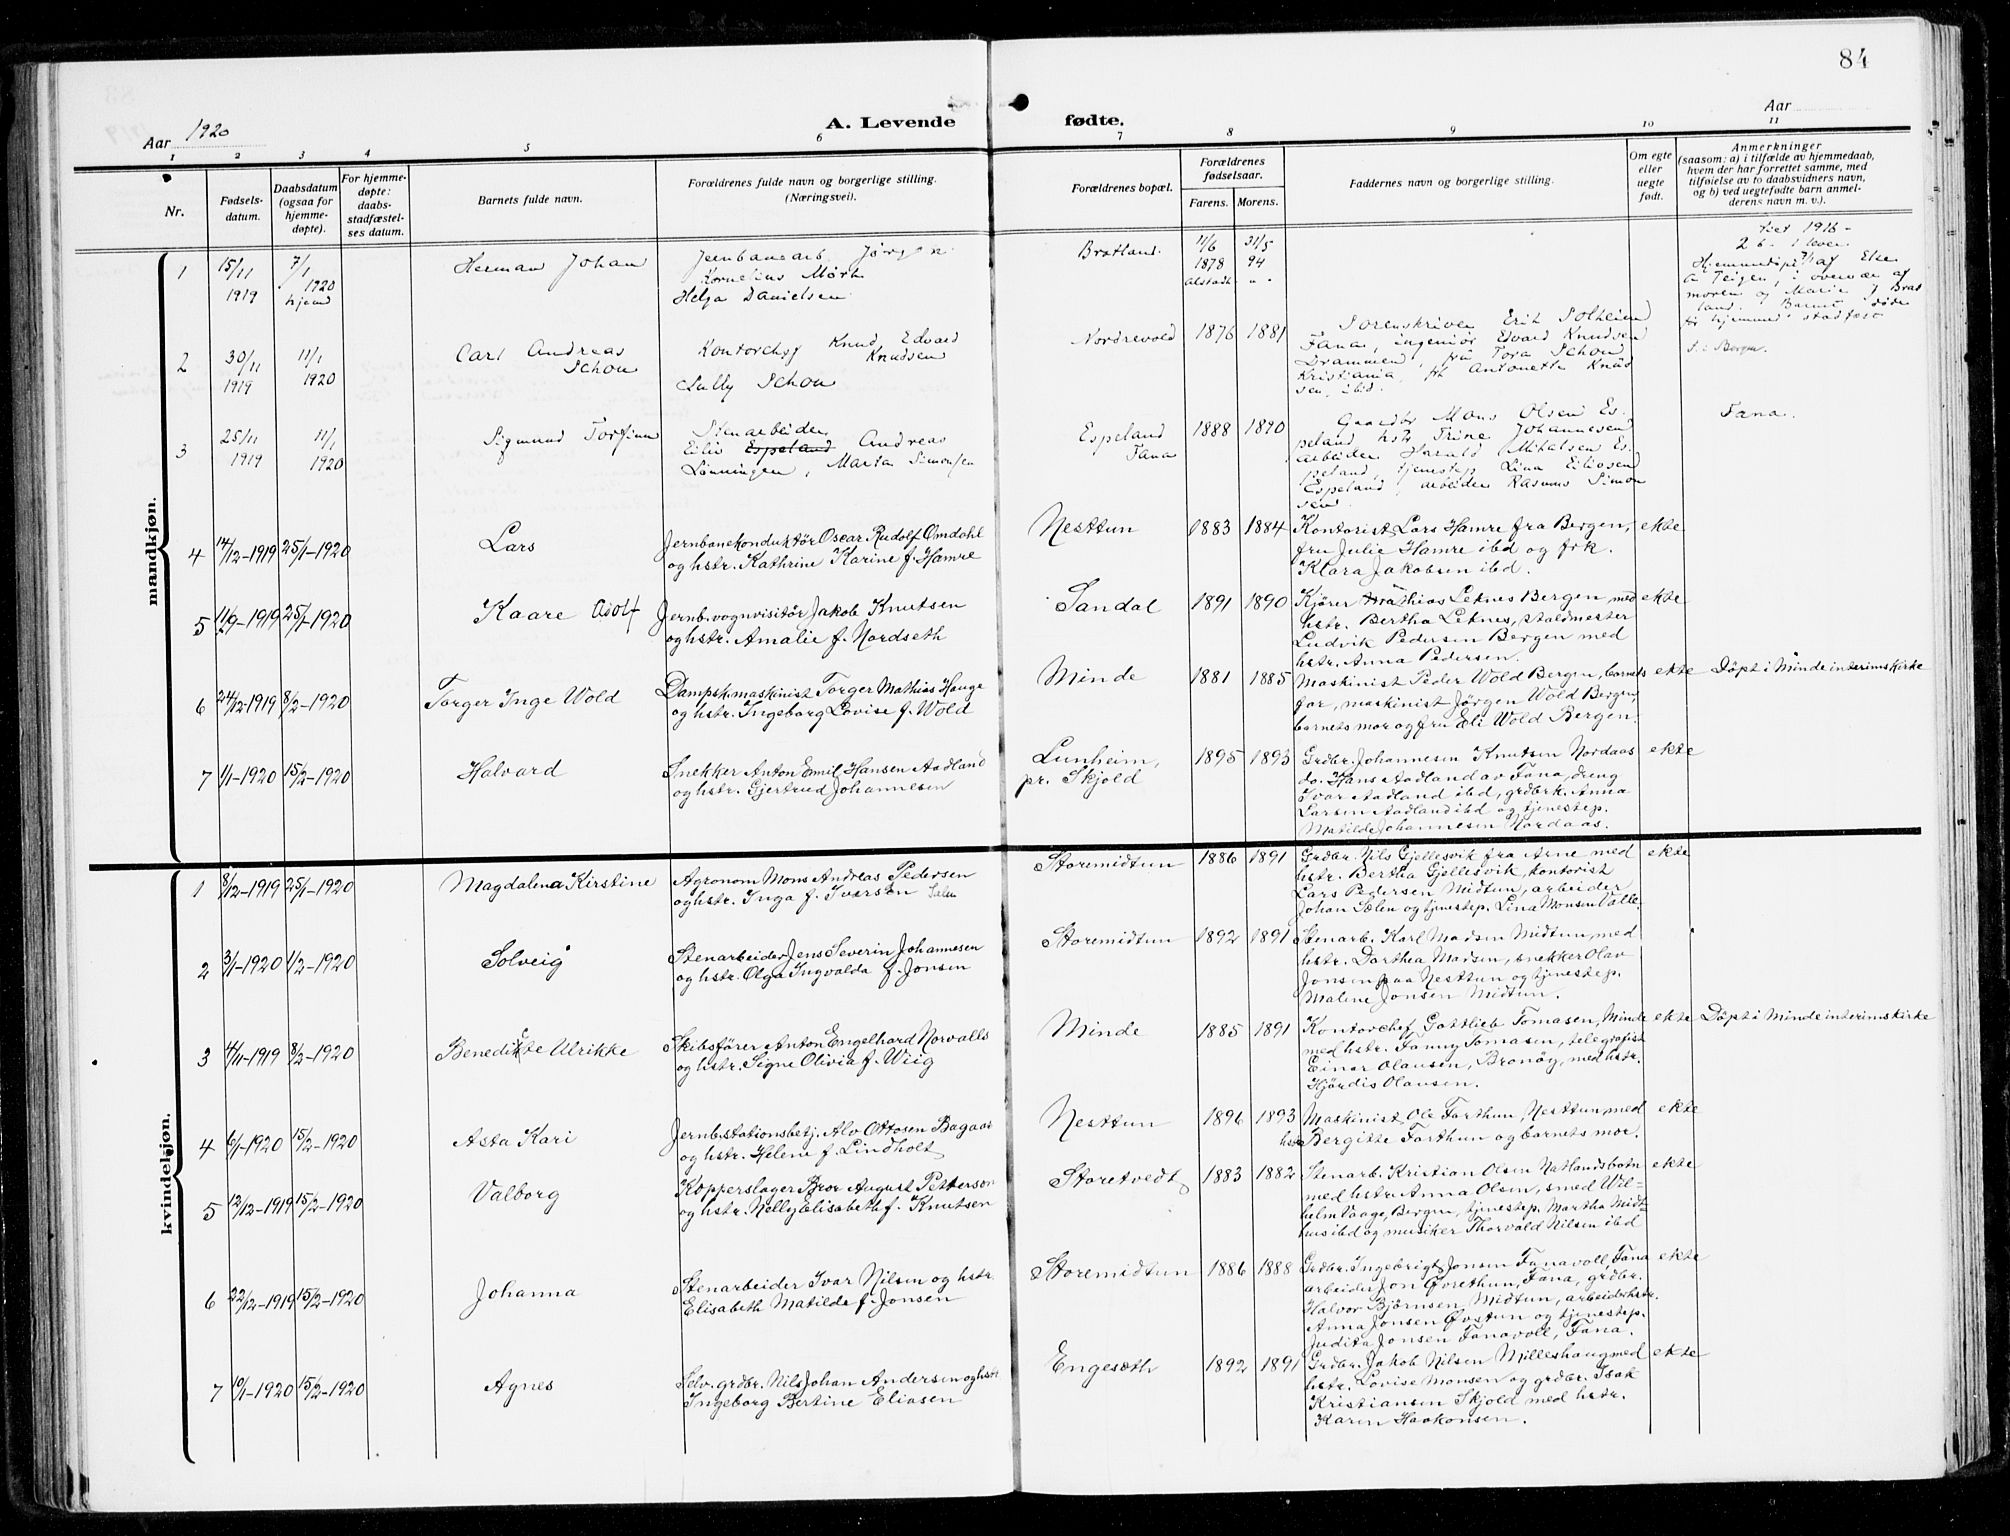 84
Aar 1920
A. Levende fødte.
Aar
1 2 3 4 5 6 7 8 9 10 11
Nr.
Fødsels-
datum.
Daabsdatum
(ogsaa for
hjemme-
døpte).
For hjemme-
døpte:
daabs-
stadfæstel-
ses datum.
Barnets fulde navn.
Forældrenes fulde navn og borgerlige stilling.
(Næringsvei).
Forældrenes bopæl.
Forældrenes
fødselsaar.
Farens. Morens.
Faddernes navn og borgerlige stilling.
Om egte
eller
uegte
født.
Anmerkninger
(saasom: a) i tilfælde av hjemmedaab,
hvem der har forrettet samme, med
tilføielse av to daabsvidners navn,
og b) ved uegtefødte barn anmel-
derens navn m. v.).
mandkjøn.
1
15/11
1919
7/1
1920
hjem
Herman Johan
Jernbanearb. Jørgen
Kornelius Mørk
Helga Danielsen
Bratland
11/6
1878
Alstadh.
31/5
94
1916
2 b. 1 lever
Hjemmedøpt af Else
A Teigen, i overvær af
moren og Marie J Brat
land. Barnet døde
før hjemmed stadfæst
2
30/11
1919
11/1
1920
Carl Andreas
Schou
Kontorchef Knud Edvard
Knudsen
Lully Schou
Nordrevold
1876 1881
Sorenskriver Erik Solheim
Fana, ingeniør Edvard Knudsen
Drammen, frk Tora Schou
Kristiania, frk Antonette Knud
sen, ibid.
S. i Bergen.
3
25/11
1919
11/1
1920
Sigmund Torfinn
Stenarbeider
Eiliv Espeland Andreas
Lønningen, Marta Simonsen
Espeland
Fana
1888 1890
Gaardbr Mons Olsen Es-
peland hstr Trine Johannesen
arbeider Harald Mikalsen Es-
peland, tjenestep Lina Eilivsen
Espeland, arbeider Rasmus Simon
sen
Fana.
4
14/12-1919 25/1-1920
Lars
Jernbanekonduktør Oscar Rudolf Omdahl
og hstr. Kathrine Karine f. Hamre
Nesttun
1883 1884
Kontorist Lars Hamre fra Bergen,
fru Julie Hamre ibd og frk.
Klara Jakobsen ibd.
ekte
5
11/9-1919 25/1-1920
Kaare Adolf
Jernb.vognvisitør Jakob Knutsen
og hstr. Amalie f. Nordseth
Sandal
1891 1890
Kjører Mathias Leknes Bergen, med
hstr. Bertha Leknes, staldmester
Ludvik Pedersen Bergen med
hstr. Anna Pedersen.
ekte
6
24/12-1919 8/2-1920
Torger Inge Wold
Dampsk.maskinist Torger Mathias Hauge
og hstr. Ingeborg Lovise f. Wold
Minde
1881 1885
Maskinist Peder Wold Bergen, barnets
far, maskinist Jørgen Wold Bergen,
barnets mor og fru Eli Wold Bergen.
ekte
Døpt i Minde interimskirke
7
1/1-1920 15/2-1920
Halvard
Snekker Anton Emil Hansen Aadland
og hstr. Gjertrud Johannesen
Lunheim,
pr. Skjold
1895 1893
Grdbr. Johannesen Knutsen Nordaas
do. Hans Aadland av Fana, dreng
Ivar Aadland ibd, grdbrk. Anna
Larsen Aadland ibd og tjenestep.
Matilde Johannesen Nordaas.
ekte
kvindekjøn.
1
8/12-1919 25/1-1920
Magdalena Kirstine
Agronom Mons Andreas Pedersen
og hstr. Inga f. Iversen Sælen
Storemidtun
1886 1891
Grdbr. Nils Gjellesvik fra Arne med
hstr. Bertha Gjellesvik, kontorist
Lars Pedersen Midtun, arbeider
Johan Sælen og tjenestep. Lina Monsen Valle.
ekte
2
3/1-1920 1/2-1920
Solveig
Stenarbeider Jens Severin Johannesen
og hstr. Olga Ingvalda f. Jonsen
Storemidtun
1892 1891
Stenarb. Karl Madsen Midtun, med
hstr. Dorthea Madsen, snekker Olav
Jonsen paa Nesttun og tjenestep.
Malene Jonsen Midtun.
3
4/11-1919 8/2-1920
Benedikte Ulrikke
Skibsfører Anton Engelhard Norvalls
og hstr. Signe Olivia f. Wiig
Minde
1885 1891
Kontorchef Gottlieb Tomasen, Minde
med hstr. Fanny Tomasen, telegrafist
Einar Olausen, Bronøy, med hstr.
Hjørdis Olausen.
ekte
Døpt i Minde interimskirke
4
6/1-1920 15/2-1920
Asta Kari
Jernb.stationsbetj. Alv Ottosen Bagaar
og hstr. Helene f. Lindholt
Nesttun
1896 1893
Maskinist Ole Forthun, Nesttun med
hstr Bergitte Forthun og barnets mor.
ekte
5
12/12-1919 15/2-1920
Valborg
Kopperslager Bror August Petterson
og hstr. Nelly Elisabeth f. Knutsen
Storetvedt
1883 1882
Stenarb. Kristian Olsen Natlandsbotn
med hstr. Anna Olsen, smed Wil-
helm Vaage, Bergen, tjenestep. Martha Midt-
hus ibd og musiker Thorvald Nilsen ibd
ekte
6
22/12-1919 15/2-1920
Johanna
Stenarbeider Ivar Nilsen og hstr.
Elisabeth Matilde f. Jonsen
Storemidtun
1886 1888
Grdbr. Ingebrigt Jonsen Fanavoll, Fana
arbeider Jon Øvrethun, Fana, grdbr.
Halvor Bjørnsen Midtun, arbeiderhstr.
Anna Jonsen Øvstun og tjenestep.
Judita Jonsen Fanavoll, Fana.
ekte
7
10/1-1920 15/2-1920
Agnes
Selv. grdbr. Nils Johan Andersen og hstr
Ingeborg Bertine Eliasen
Engesæth
1892 1891
Grdbr. Jakob Nilsen Milleshaug med
hstr. Lovise Monsen og grdbr. Isak
Kristiansen Skjold med hstr.
Karen Haakonsen.
ekte